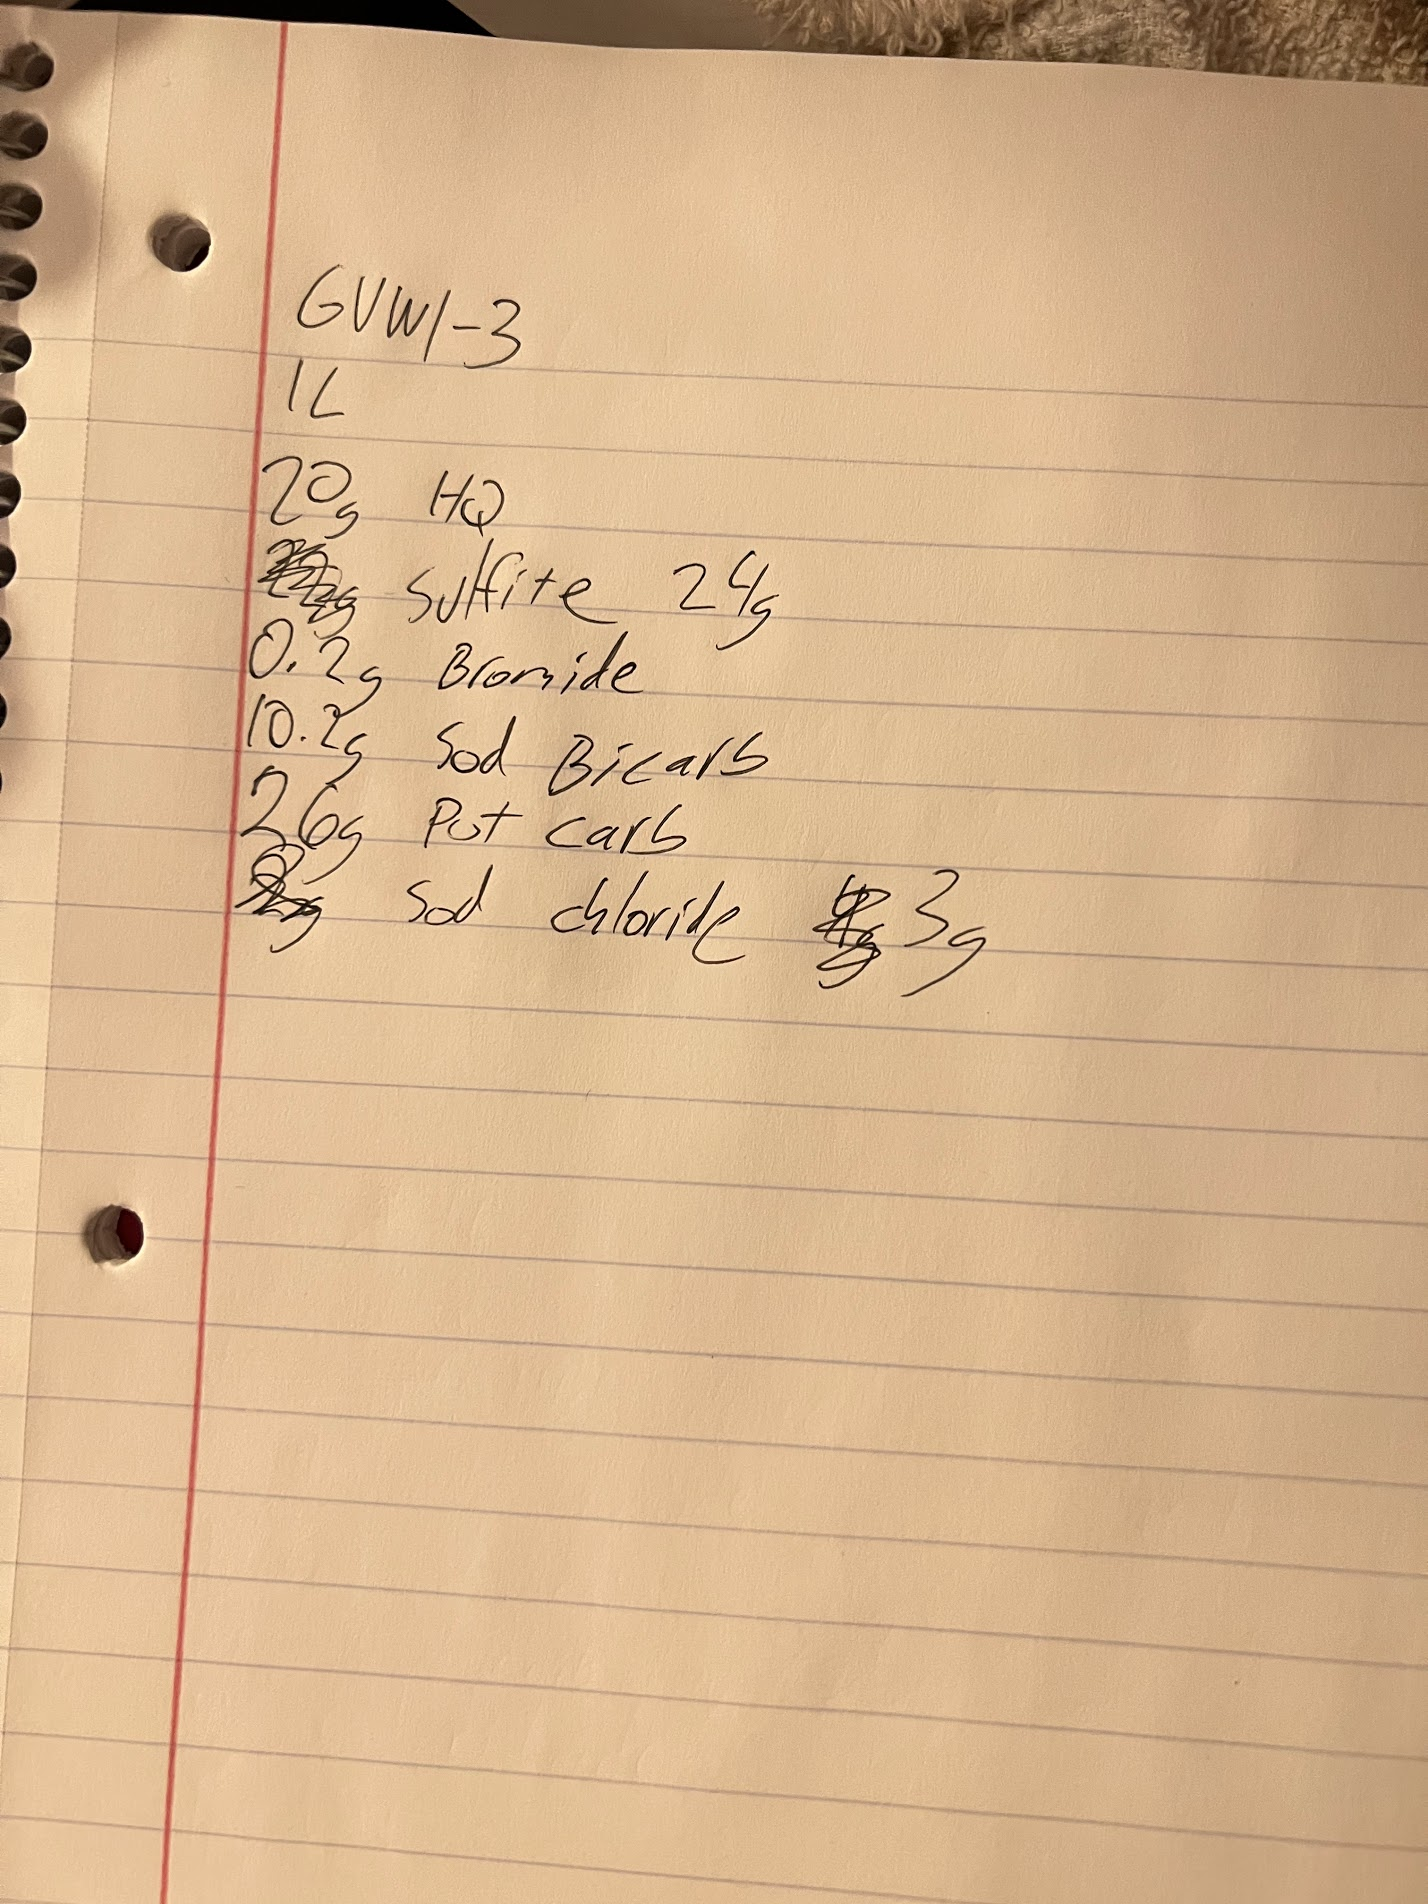 GVW1-3
1L
20g HQ
Sulfite 24g
0.2g Bromide
10.2g Sod Bicarb
26g Pot carb
Sod chloride 3g